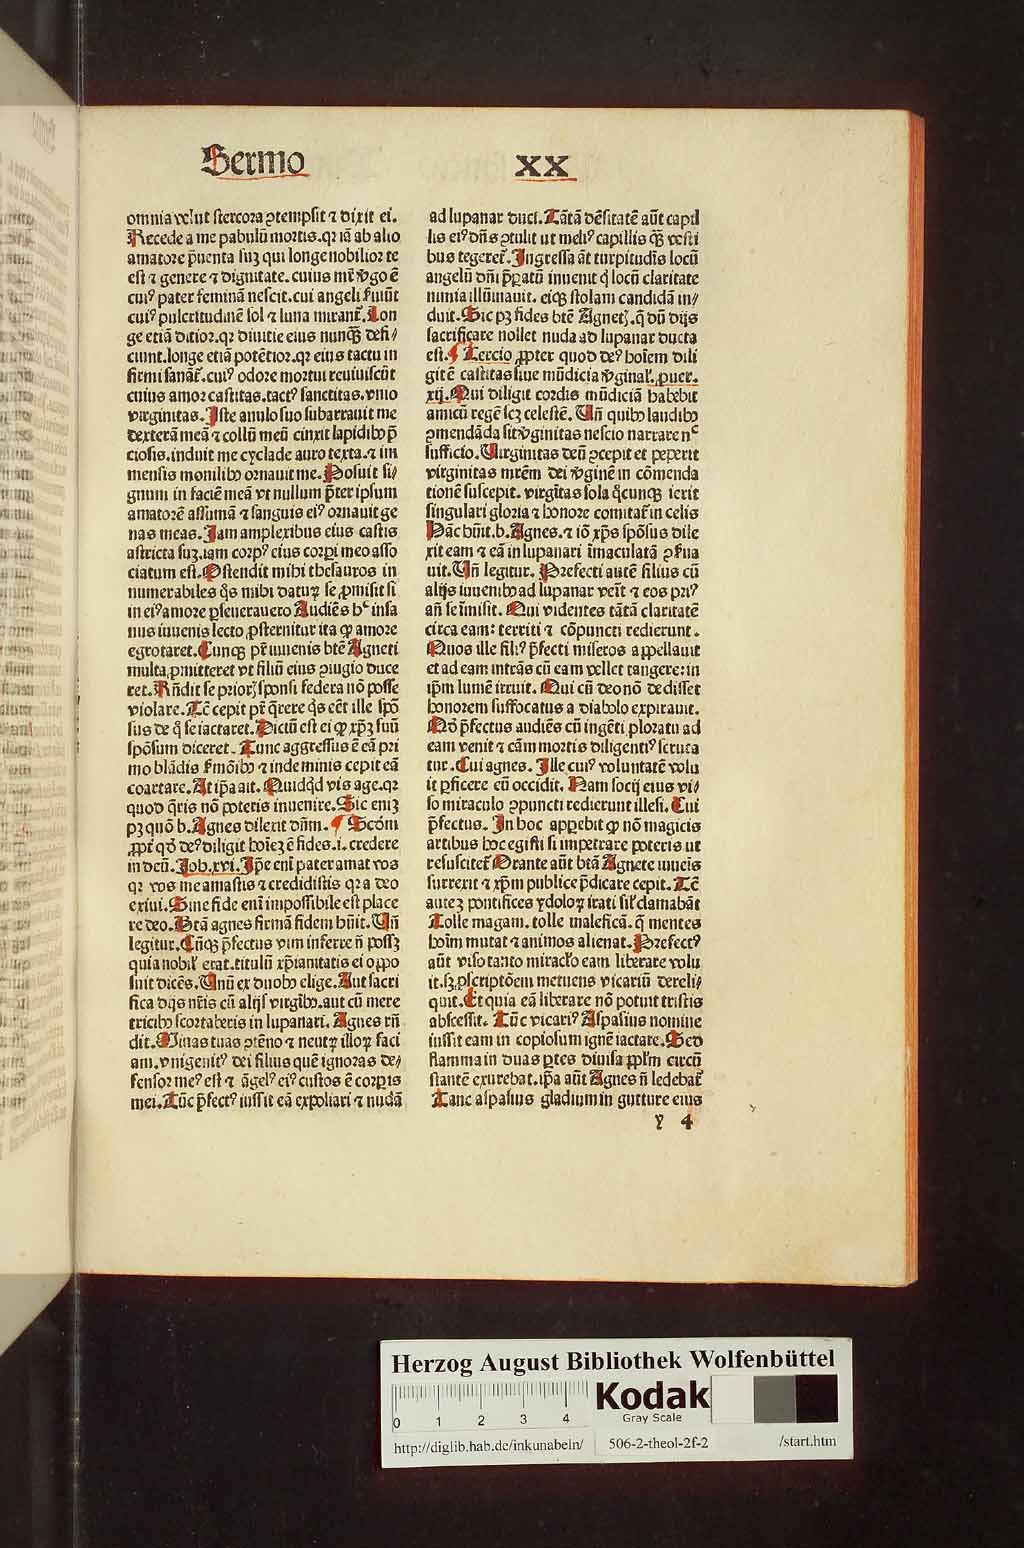 Sermo XX
omnia velut stercora ꝯtempsit ⁊ dixit ei.
Recede a me pabulū mortis. qꝛ iā ab alio
amatore p̄uenta suꝫ qui longe nobilior te
est ⁊ genere ⁊ dignitate. cuius mr̄ v̓go ē
cuiꝰ pater feminā nescit. cui angeli ẜuiūt
cuiꝰ pulcritudinē sol ⁊ luna mirant᷑. Lon
ge etiā ditior. qꝛ diuitie eius nunqꝫ defi/
ciunt. longe etiā potētior. qꝛ eius tactu in
firmi sanāt᷑. cuiꝰ odore mortui reuiuiscūt
cuius amor castitas. tactꝰ sanctitas. vnio
virginitas. Iste anulo suo subarrauit me
dexterā meā ⁊ collū meū cinxit lapidibꝫ p̄
ciosis. induit me cyclade auro texta. ⁊ im
mensis monilibꝫ ornauit me. Posuit si/
gnum in faciē meā vt nullum p̄ter ipsum
amatorē assumā ⁊ sanguis eiꝰ ornauit ge
nas meas. Iam amplexibus eius castis
astricta suꝫ. iam corpꝰ eius corꝑi meo asso
ciatum est. Ostendit mihi thesauros in
numerabiles q̓s mihi daturꝝ se ꝓmisit si
in eiꝰ amore ꝑseuerauero Audiēs hͨ insa
nus iuuenis lecto ꝓsternitur ita ꝙ amore
egrotaret. Cunqꝫ pr̄ iuuenis btē Agneti
multa ꝓmitteret vt filiū eius ꝯiugio duce
ret. Rn̄dit se prioris sponsi federa nō posse
violare. Tē cepit pr̄ q̄rere q̓s eēt ille spō
sus de q̊ se iactaret. Dictū est ei ꝙ xp̄ꝫ suū
spōsum diceret. Tunc aggressus ē eā pri
mo blādis ẜmōibꝫ ⁊ inde minis cepit eā
coartare. At ip̄a ait. Quidq̇d vis age. qꝛ
quod q̄ris nō poteris inuenire. Sic eniꝫ
pꝫ quō b. Agnes dilexit dn̄m. ¶ Scd̄m
ꝓpt̄ qd̓ deꝰ diligit hoieꝫ ē fides. i. credere
in deū. Job. xvi. Ip̄e eni pater amat vos
qꝛ vos me amastis ⁊ credidistis qꝛ a deo
exiui. Sine fide eni impossibile est place
re deo. Btā agnes firmā fidem hūit. Un̄
legitur. Cūqꝫ p̄fectus vim inferre n̄ possꝫ
quia nobil̓ erat. titulū xp̄ianitatis ei oppo
suit dicēs. Unū ex duobꝫ elige. Aut sacri
fica dijs nr̄is cū alijs virgībꝫ. aut cū mere
tricibꝫ scortaberis in lupanari. Agnes rn̄
dit. Minas tuas ꝯtēno ⁊ neutꝝ illoꝝ faci
am. vnigenitꝰ dei filius quē ignoras de/
fensor meꝰ est ⁊ āgelꝰ eiꝰ custos ē corꝑis
mei. Tūc p̄fectꝰ iussit eā expoliari ⁊ nudā
ad lupanar duci. Tātā dēsitatē aūt capil
lis eiꝰ dn̄s ꝯtulit ut meliꝰ capillis qꝫ vesti
bus tegeret᷑. Ingressa āt turpitudīs locū
angelū dn̄i p̄ꝑatū inuenit q̇ locū claritate
nimia illūinauit. eiqꝫ stolam candidā in/
duit. Sic pꝫ fides btē Agnetꝭ. q̄ dū dijs
sacrificare nollet nuda ad lupanar ducta
est. ¶ Tercio ꝓpter quod deꝰ hoīem dili
git ē castitas siue mūdicia v̓ginal̓. ꝓuer.
xij. Qui diligit cordis mūdiciā habebit
amicū regē scꝫ celestē. Un̄ quibꝫ laudibꝫ
ꝯmendāda sit v̓ginitas nescio narrare nͨ
sufficio. Uirginitas deū ꝯcepit et peperit
virginitas mr̄em dei v̓ginē in cōmenda
tionē suscepit. virgītas sola q̄cunqꝫ ierit
singulari gloria ⁊ honore comitat᷑ in celis
Hāc hūit. b. Agnes. ⁊ iō xp̄s spōsus dile
xit eam ⁊ eā in lupanari īmaculatā ꝯẜua
uit. Un̄ legitur. Prefecti autē filius cū
alijs iuuenibꝫ ad lupanar veīt ⁊ eos priꝰ
an̄ se īmisit. Qui videntes tātā claritatē
circa eam: territi ⁊ cōpuncti redierunt.
Quos ille filiꝰ p̄fecti miseros appellauit
et ad eam intrās cū eam vellet tangere: in
ip̄m lumē irruit. Qui cū deo nō dedisset
honorem suffocatus a diabolo expirauit.
Qd̓ p̄fectus audiēs cū ingēti ploratu ad
eam venit ⁊ cām mortis diligentiꝰ scruta
tur. Cui agnes. Ille cuiꝰ voluntatē volu
it ꝑficere eū occidit. Nam socij eius vi/
so miraculo ꝯpuncti redierunt illesi. Cui
p̄fectus. In hoc apꝑebit ꝙ nō magicis
artibus hoc egisti si impetrare poteris ut
resuscitet᷑ Orante aūt btā Agnete iuueīs
surrexit ⁊ xp̄m publice p̄dicare cepit. Tē
auteꝫ pontifices ydoloꝝ irati sil̓ clamabāt
Tolle magam. tolle maleficā. q̄ mentes
hoīm mutat ⁊ animos alienat. Prefectꝰ
aūt viso tanto miracl̓o eam liberare volu
it. sꝫ ꝓscriptōem metuens vicariū dereli/
quit. Et quia eā liberare nō potuit tristis
abscessit. Tūc vicariꝰ Aspasius nomine
iussit eam in copiosum ignē iactare. Sed
flamma in duas ꝑtes diuisa ppl̓m circū
stantē exurebat. ip̄a aūt Agnes n̄ ledebat᷑
Tanc aspasius gladium in gutture eius
y 4
Herzog August Bibliothek Wolfenbüttel
0 1 2 3 4
Kodak
Gray Scale
http://diglib.hab.de/inkunabeln/ 506-2-theol-2f-2 /start.htm